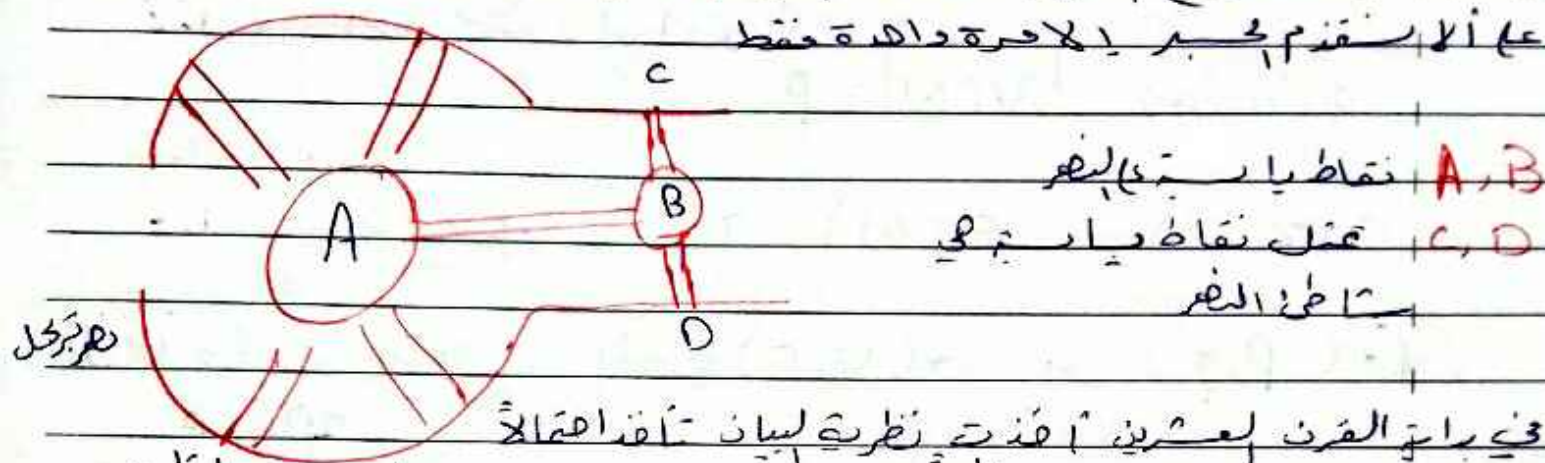 على ألا نستخدم الجسر إلا مرة واحدة فقط
C
A, B نقاط يابسة في النهر
B
A
C, D تمثل نقاط يابسة هي
شاطئ النهر
D
نهر بريجل
في بداية القرن العشرين أخذت نظرية البيان تأخذ احتمالاً